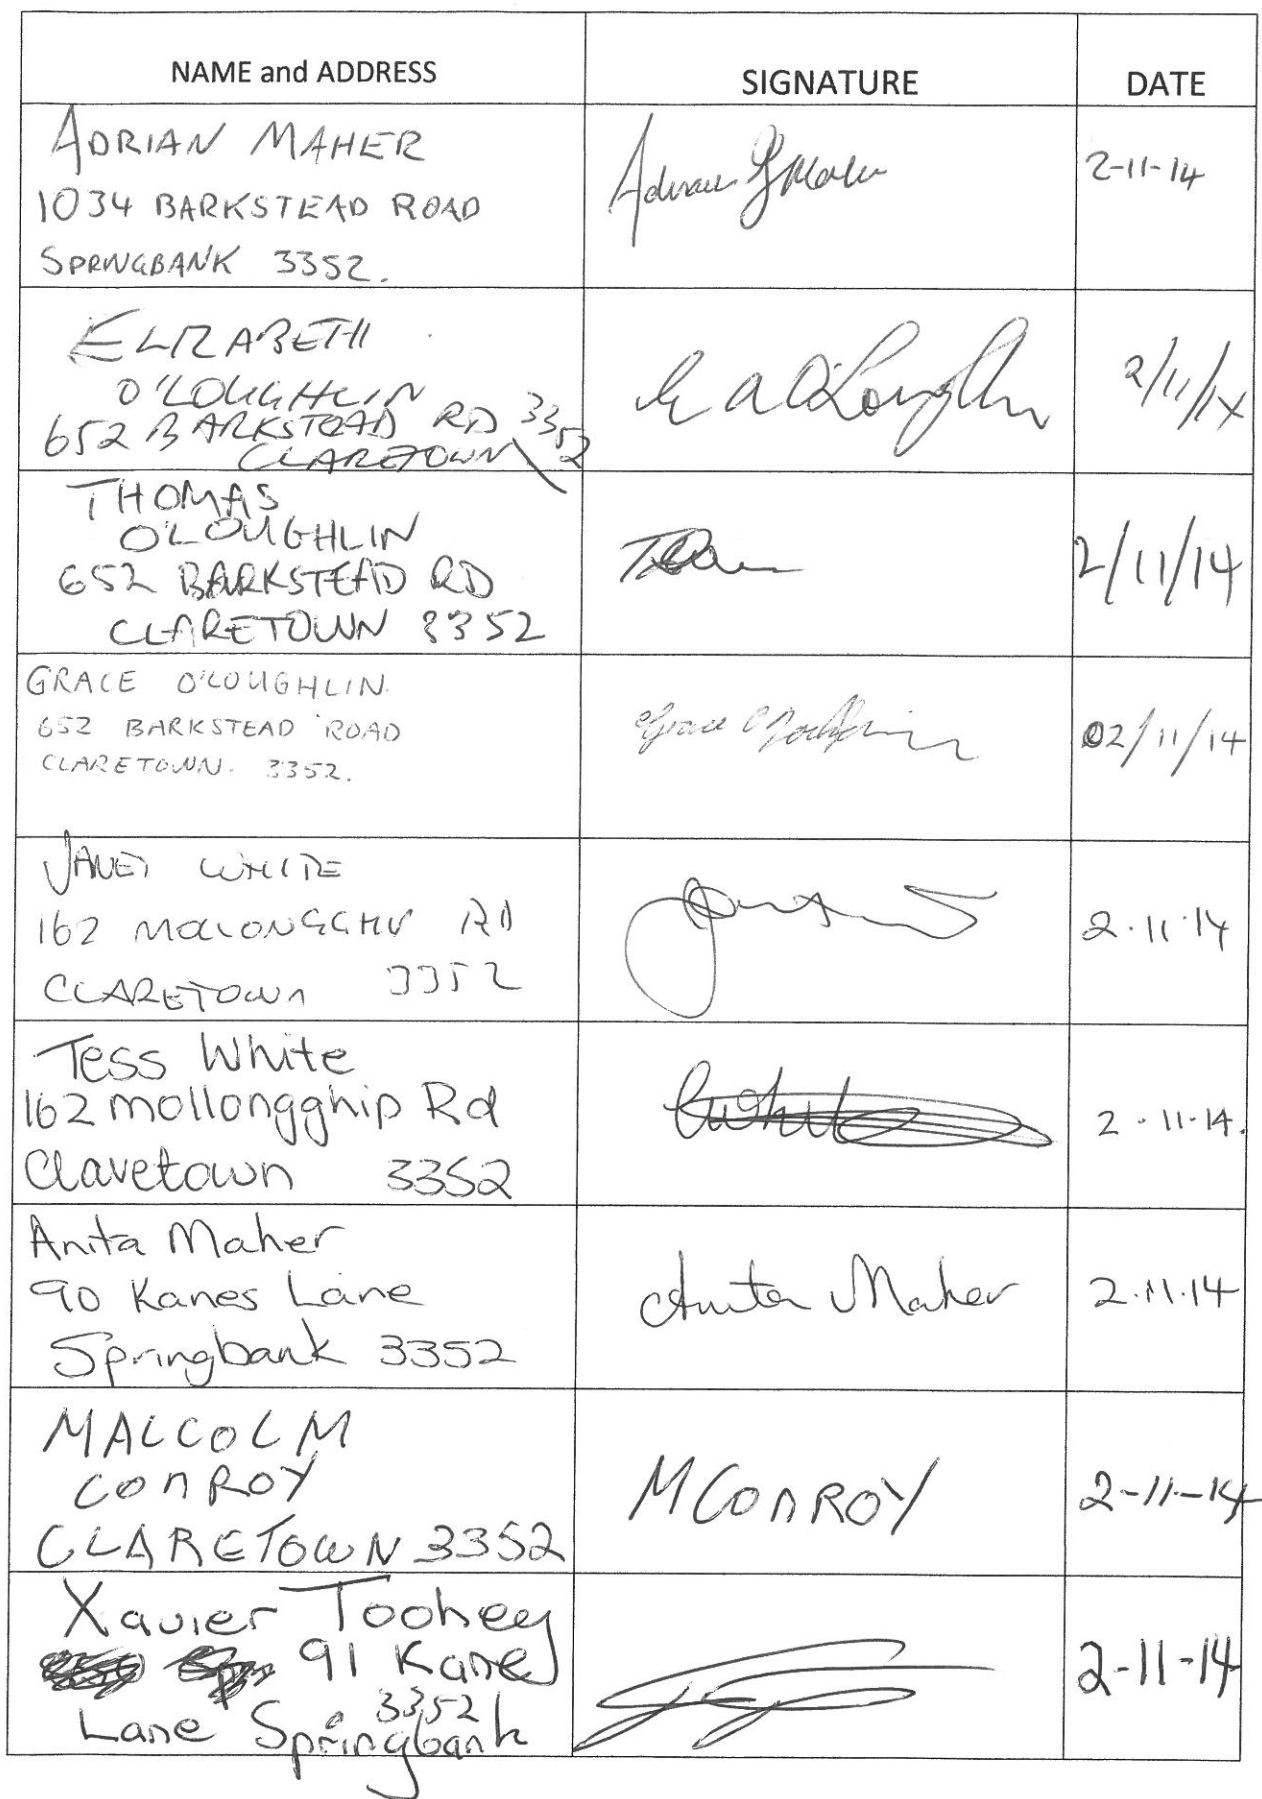 NAME and ADDRESS SIGNATURE DATE
ADRIAN MAHER
1034 BARKSTEAD ROAD
SPRINGBANK 3352.
2-11-14
ELIZABETH
O'LOUGHLIN
652 BARKSTEAD RD 3352
CLARETOWN
E A O'Loughlin
2/11/14
THOMAS
O'LOUGHLIN
652 BARKSTEAD RD
CLARETOWN 3352
2/11/14
GRACE O'LOUGHLIN
652 BARKSTEAD ROAD
CLARETOWN. 3352.
Grace O'Loughlin
02/11/14
JANET WHITE
162 MOLLONGGHIP RD
CLARETOWN 3352
2.11.14
Tess White
162 mollongghip Rd
Claretown 3352
2.11.14.
Anita Maher
90 Kanes Lane
Springbank 3352
Anita Maher
2.11.14
MALCOLM
CONROY
CLARETOWN 3352
M CONROY
2-11-14
Xavier Toohey
91 Kanes
Lane Springbank 3352
2-11-14